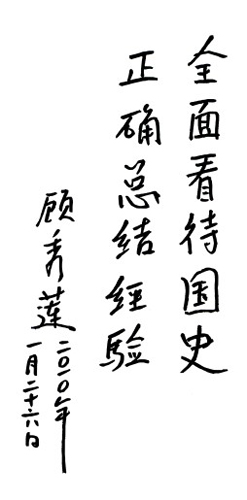 全面看待国史
正确总结经验
顾秀莲
二〇一〇年
一月二十六日